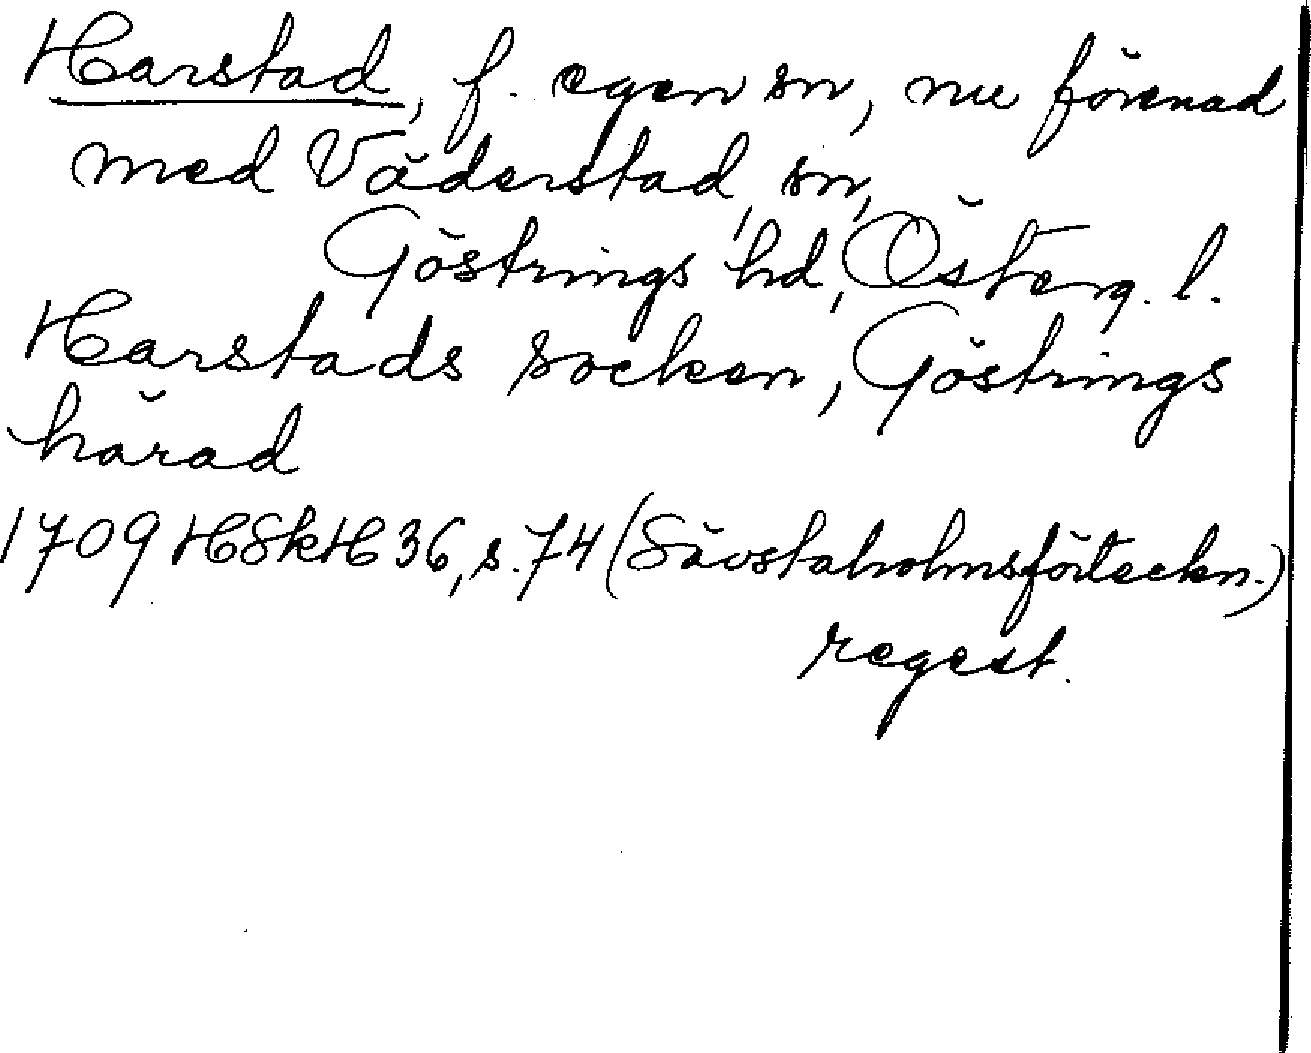 Harstad, f. egen sn, nu förenad
med Väderstad, sn,
Göstrings hd, Österg. l.
Harstads socken, Göstrings
härad
1709 HSkH 36, s. 74 (Sävstaholmsförteckn.)
regest.